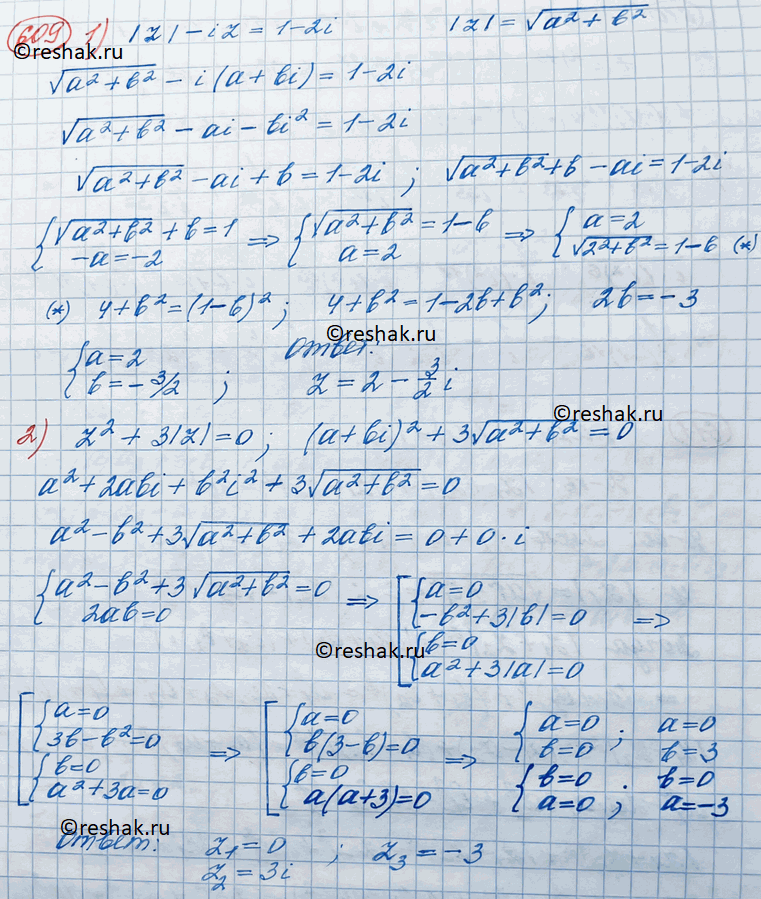 609 1) |z| - iz = 1-2i |z| = √(a²+b²)
©reshak.ru
√(a²+b²) - i(a+bi) = 1-2i
√(a²+b²) - ai - bi² = 1-2i
©reshak.ru
√(a²+b²) - ai + b = 1-2i ; √(a²+b²) + b - ai = 1-2i
{ √(a²+b²) + b = 1 ⇒ { √(a²+b²) = 1-b ⇒ { a = 2
-a = -2 a = 2 √(2²+b²) = 1-b (*)
(*) 4+b² = (1-b)² ; 4+b² = 1-2b+b² ; 2b = -3
©reshak.ru
{ a = 2 Ответ:
b = -3/2 ; z = 2 - 3/2 i
©reshak.ru
2) z² + 3|z| = 0 ; (a+bi)² + 3√(a²+b²) = 0
a² + 2abi + b²i² + 3√(a²+b²) = 0
a² - b² + 3√(a²+b²) + 2abi = 0 + 0·i
{ a² - b² + 3√(a²+b²) = 0 ⇒ [ { a = 0
2ab = 0 -b² + 3|b| = 0 ⇒
©reshak.ru
{ b = 0
a² + 3|a| = 0
[ { a = 0 ⇒ [ { a = 0 ⇒ { a = 0 ; a = 0
3b - b² = 0 b(3-b) = 0 b = 0 b = 3
{ b = 0 { b = 0 { b = 0 ; b = 0
a² + 3a = 0 a(a+3) = 0 a = 0 a = -3
©reshak.ru
Ответ: z₁ = 0 ; z₃ = -3
z₂ = 3i
©reshak.ru